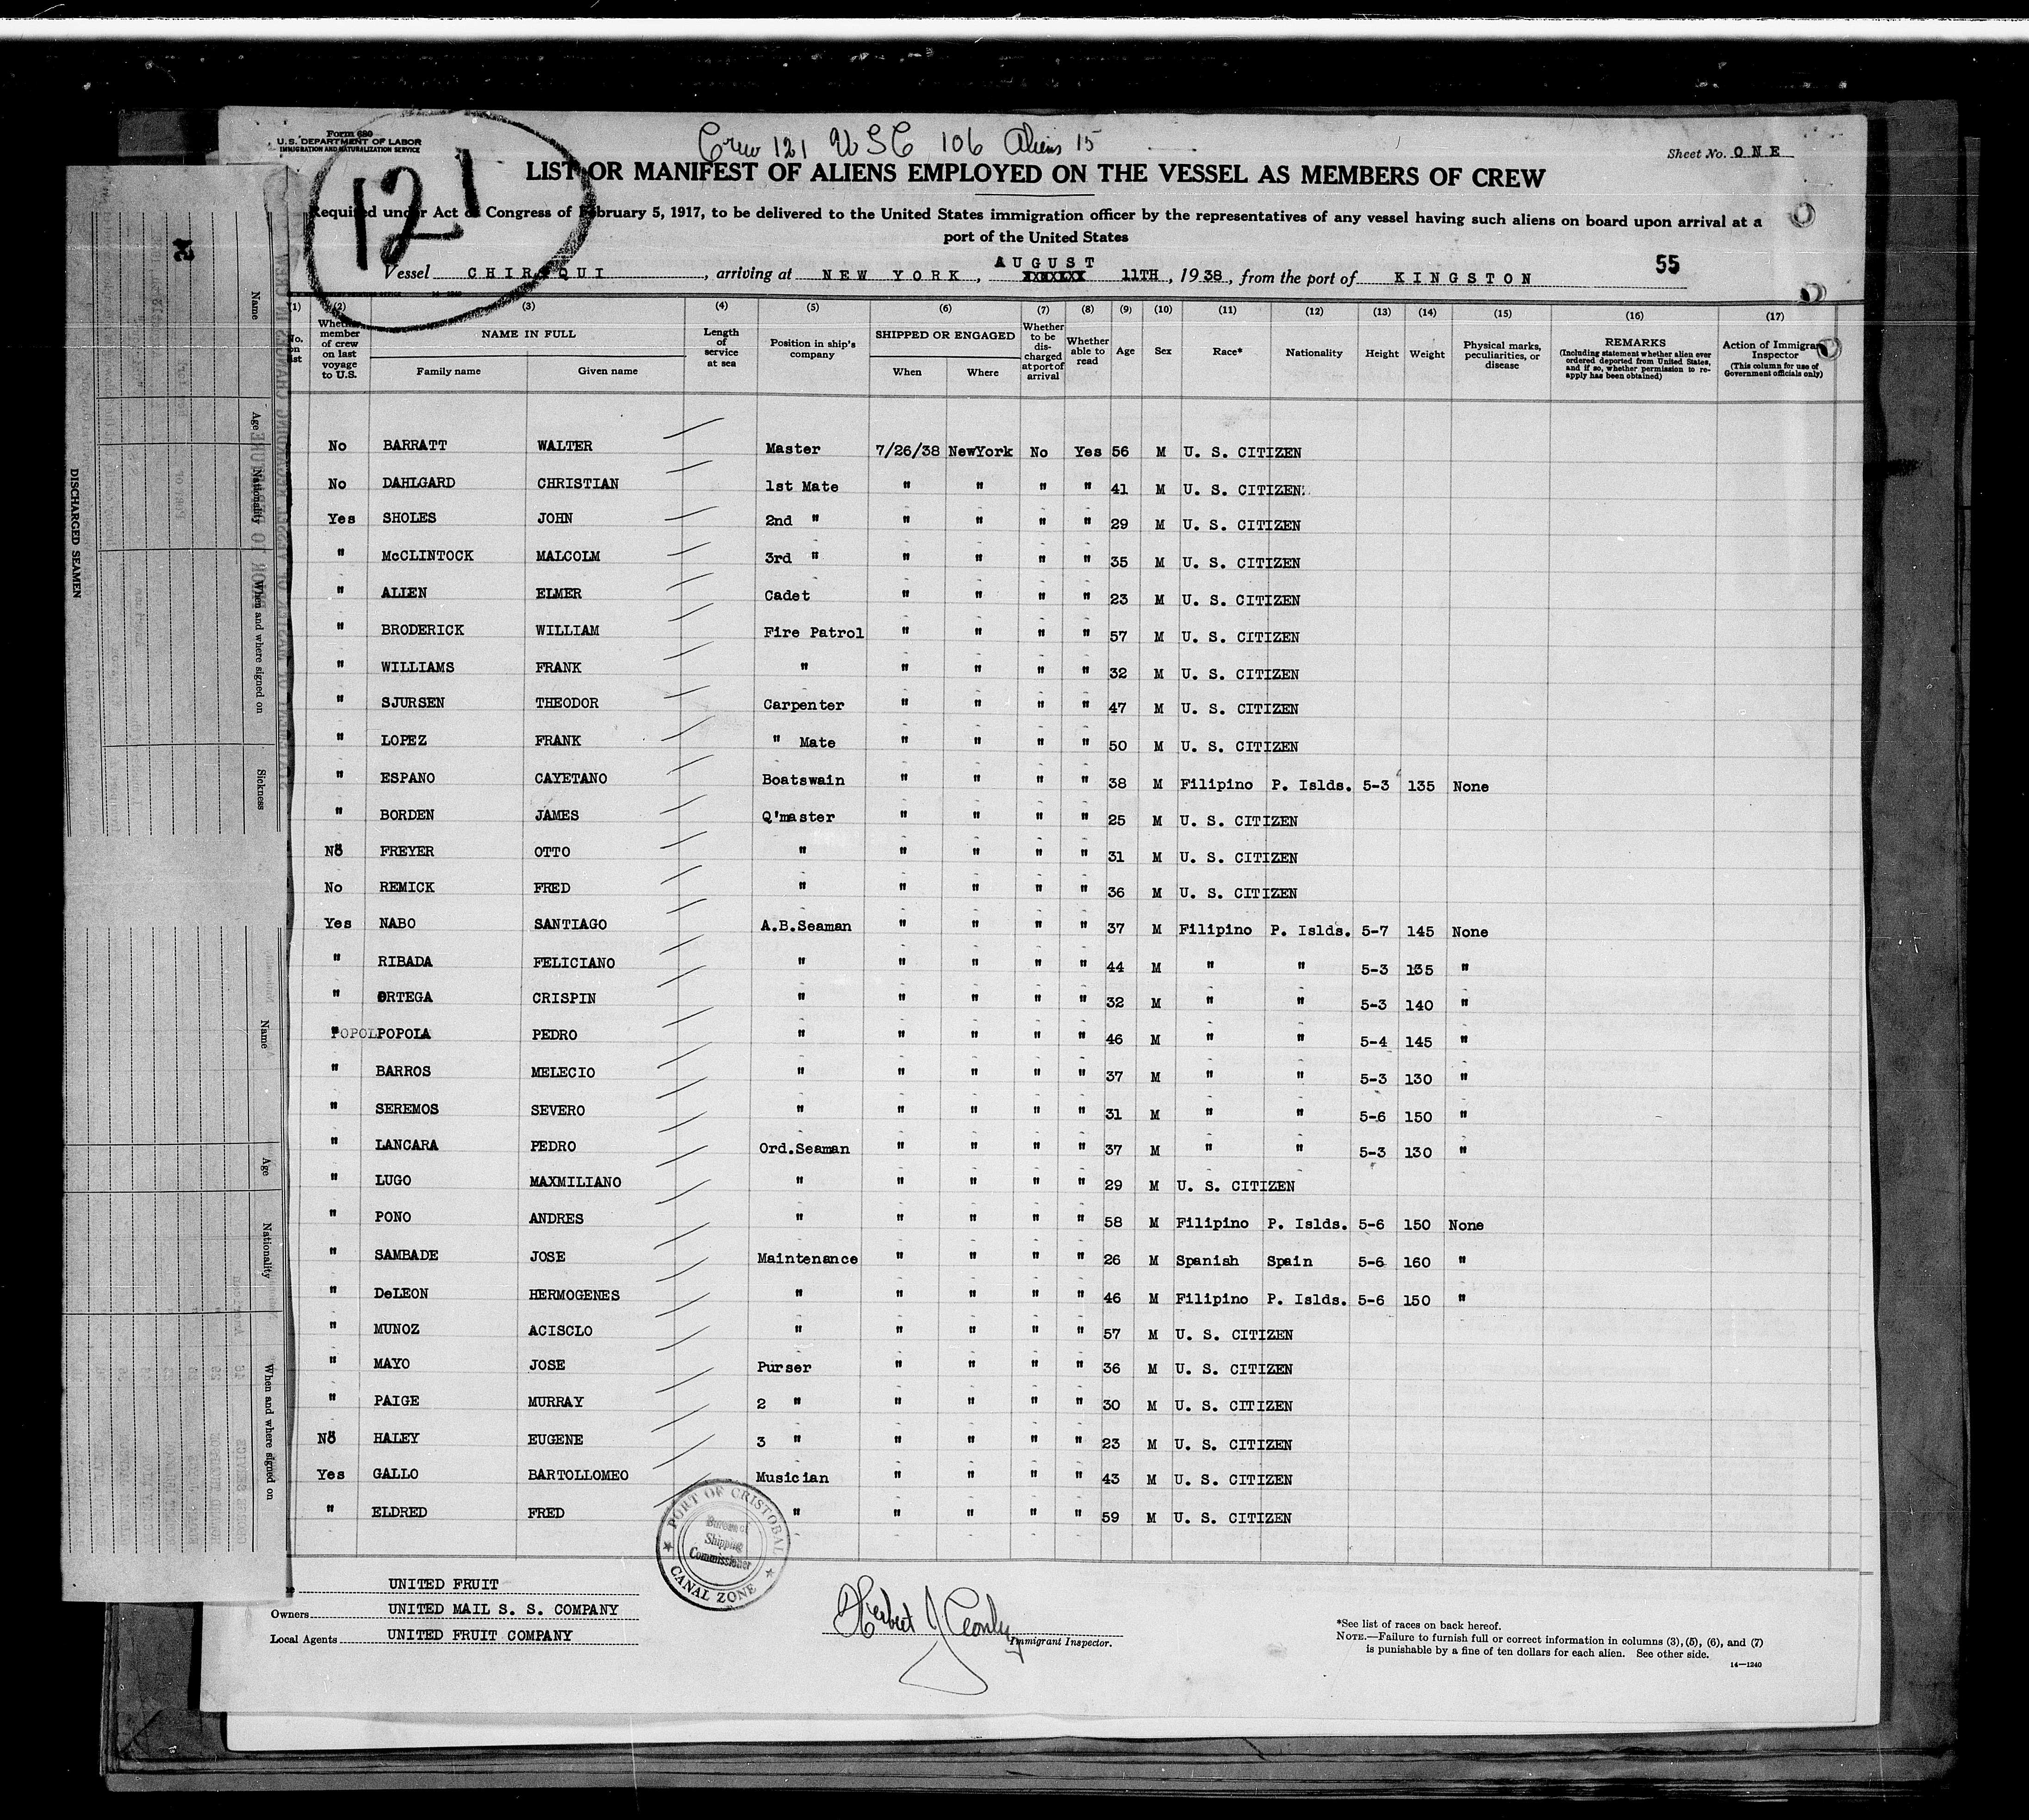 Form 680
U.S. DEPARTMENT OF LABOR
IMMIGRATION AND NATURALIZATION SERVICE
Crew 121 USC 106 Aliens 15
121
Sheet No. ONE
LIST OR MANIFEST OF ALIENS EMPLOYED ON THE VESSEL AS MEMBERS OF CREW
Required under Act of Congress of February 5, 1917, to be delivered to the United States immigration officer by the representatives of any vessel having such aliens on board upon arrival at a
port of the United States
AUGUST
Vessel CHIRIQUI, arriving at NEW YORK, 11TH, 1938, from the port of KINGSTON
55
(1) (2) (3) (4) (5) (6) (7) (8) (9) (10) (11) (12) (13) (14) (15) (16) (17)
No. on list | Whether member of crew on last voyage to U.S. | NAME IN FULL Family name Given name | Length of service at sea | Position in ship's company | SHIPPED OR ENGAGED When Where | Whether to be discharged at port of arrival | Whether able to read | Age | Sex | Race* | Nationality | Height | Weight | Physical marks, peculiarities, or disease | REMARKS (Including statement whether alien ever ordered deported from United States, and if so, whether permission to reapply has been obtained) | Action of Immigrant Inspector (This column for use of Government officials only)
No BARRATT WALTER Master 7/26/38 NewYork No Yes 56 M U. S. CITIZEN
No DAHLGARD CHRISTIAN 1st Mate " " " " 41 M U. S. CITIZEN
Yes SHOLES JOHN 2nd " " " " " 29 M U. S. CITIZEN
" McCLINTOCK MALCOLM 3rd " " " " " 35 M U. S. CITIZEN
" ALLEN ELMER Cadet " " " " 23 M U. S. CITIZEN
" BRODERICK WILLIAM Fire Patrol " " " " 57 M U. S. CITIZEN
" WILLIAMS FRANK " " " " " 32 M U. S. CITIZEN
" SJURSEN THEODOR Carpenter " " " " 47 M U. S. CITIZEN
" LOPEZ FRANK " Mate " " " " 50 M U. S. CITIZEN
" ESPANO CAYETANO Boatswain " " " " 38 M Filipino P. Islds. 5-3 135 None
" BORDEN JAMES Q'master " " " " 25 M U. S. CITIZEN
No FREYER OTTO " " " " " 31 M U. S. CITIZEN
No REMICK FRED " " " " " 36 M U. S. CITIZEN
Yes NABO SANTIAGO A.B.Seaman " " " " 37 M Filipino P. Islds. 5-7 145 None
" RIBADA FELICIANO " " " " " 44 M " " 5-3 135 "
" ORTEGA CRISPIN " " " " " 32 M " " 5-3 140 "
" POPOLPOPOLA PEDRO " " " " " 46 M " " 5-4 145 "
" BARROS MELECIO " " " " " 37 M " " 5-3 130 "
" SEREMOS SEVERO " " " " " 31 M " " 5-6 150 "
" LANCARA PEDRO Ord.Seaman " " " " 37 M " " 5-3 130 "
" LUGO MAXMILIANO " " " " " 29 M U. S. CITIZEN
" PONO ANDRES " " " " " 58 M Filipino P. Islds. 5-6 150 None
" SAMBADE JOSE Maintenance " " " " 26 M Spanish Spain 5-6 160 "
" DeLEON HERMOGENES " " " " " 46 M Filipino P. Islds. 5-6 150 "
" MUNOZ ACISCLO " " " " " 57 M U. S. CITIZEN
" MAYO JOSE Purser " " " " 36 M U. S. CITIZEN
" PAIGE MURRAY 2 " " " " " 30 M U. S. CITIZEN
No HALEY EUGENE 3 " " " " " 23 M U. S. CITIZEN
Yes GALLO BARTOLLOMEO Musician " " " " 43 M U. S. CITIZEN
" ELDRED FRED " " " " " 59 M U. S. CITIZEN
PORT OF CRISTOBAL
Bureau of
Shipping
Commissioner
CANAL ZONE
UNITED FRUIT
Owners UNITED MAIL S. S. COMPANY
Local Agents UNITED FRUIT COMPANY
Immigrant Inspector.
*See list of races on back hereof.
NOTE.—Failure to furnish full or correct information in columns (3), (5), (6), and (7)
is punishable by a fine of ten dollars for each alien. See other side.
14—1240
DISCHARGED SEAMEN
Name
Age
Nationality
When and where signed on
Sickness
Name
Age
Nationality
When and where signed on